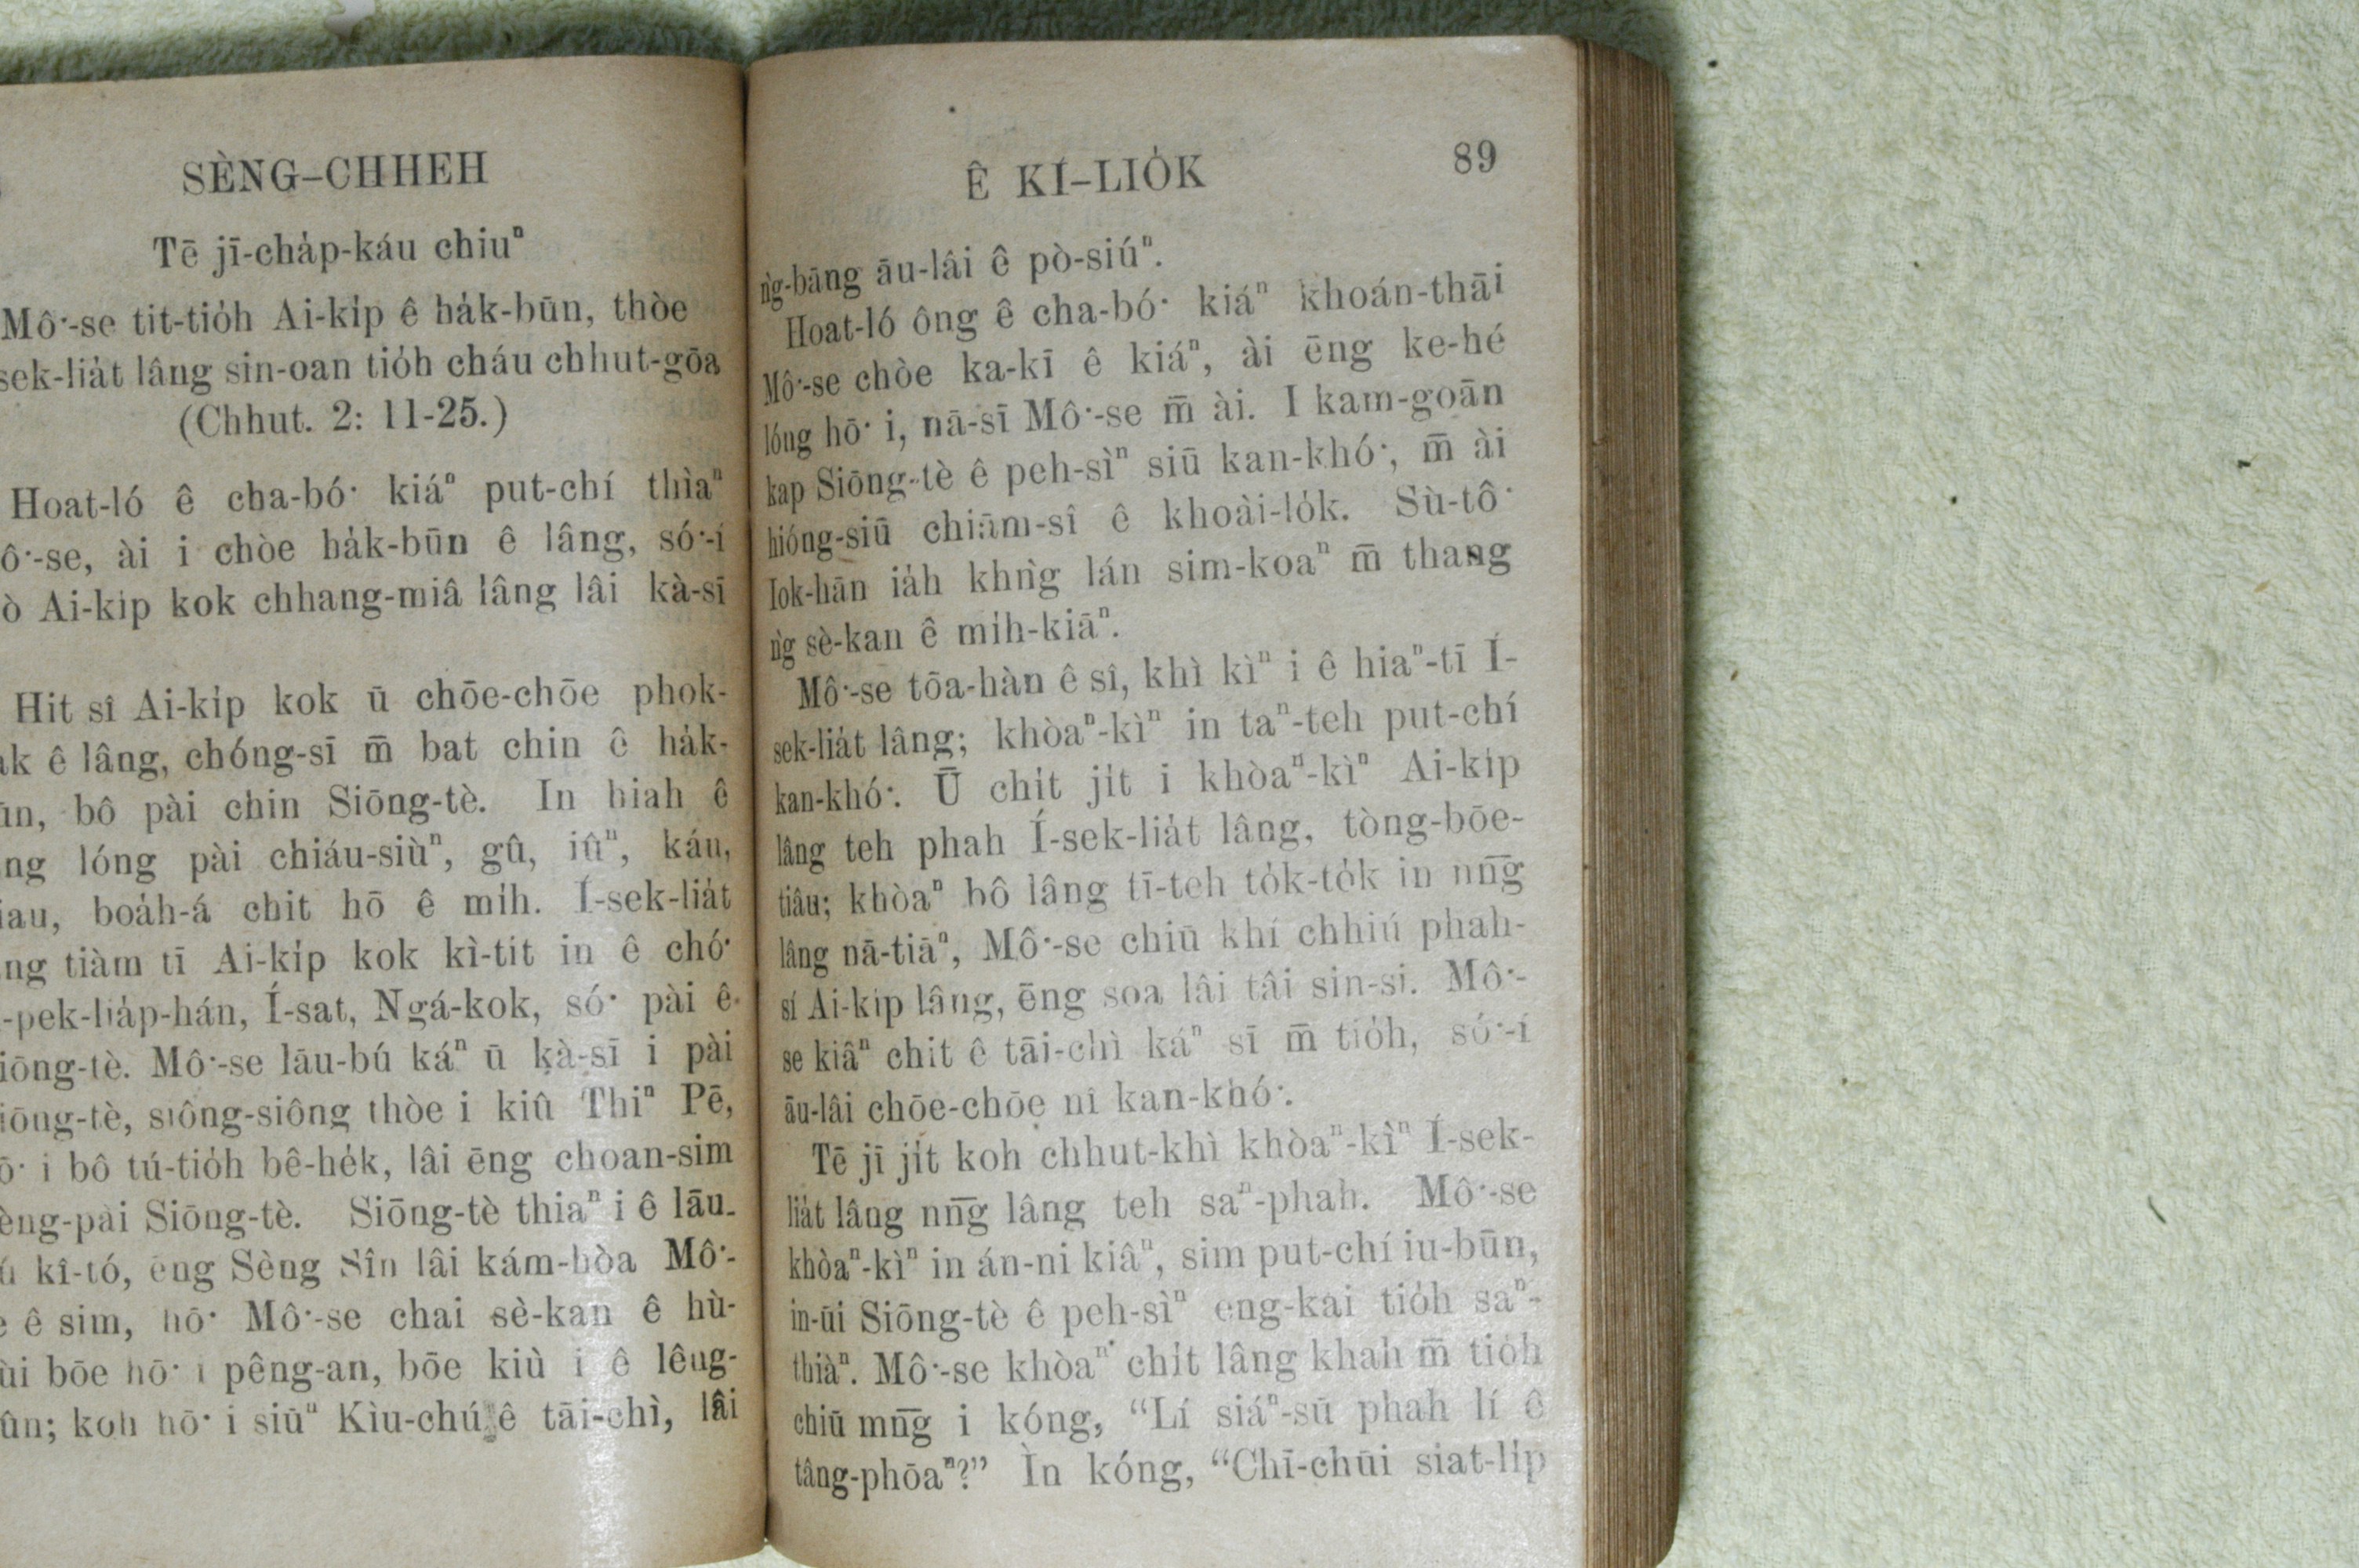 SÈNG–CHHEH
Tē jī-cha̍p-káu chiuⁿ
Mô͘-se tit-tio̍h Ai-ki̍p ê ha̍k-būn, thòe
sek-lia̍t lâng sin-oan tio̍h cháu chhut-gōa
(Chhut. 2: 11-25.)
Hoat-ló ê cha-bó͘ kiáⁿ put-chí thìaⁿ
ô͘-se, ài i chòe ha̍k-būn ê lâng, só͘-í
ò Ai-ki̍p kok chhang-miâ lâng lâi kà-sī
Hit sî Ai-ki̍p kok ū chōe-chōe phok-
ak ê lâng, chóng-sī m̄ bat chin ê ha̍k-
ūn, bô pài chin Siōng-tè. In hiah ê
ng lóng pài chiáu-siùⁿ, gû, iûⁿ, káu,
iau, boa̍h-á chit hō ê mi̍h. Í-sek-lia̍t
ng tiàm tī Ai-ki̍p kok kì-tit in ê chó͘
-pek-lia̍p-hán, Í-sat, Ngá-kok, só͘ pài ê
iōng-tè. Mô͘-se lāu-bú káⁿ ū kà-sī i pài
iōng-tè, siông-siông thòe i kiû Thiⁿ Pē,
ō͘ i bô tú-tio̍h bê-he̍k, lâi ēng choan-sim
èng-pài Siōng-tè. Siōng-tè thiaⁿ i ê lāu-
ú kî-tó, ēng Sèng Sîn lâi kám-hòa Mô͘-
e ê sim, hō͘ Mô͘-se chai sè-kan ê hù-
ùi bōe hō͘ i pêng-an, bōe kiù i ê lêng-
ûn; koh hō͘ i siūⁿ Kìu-chú ê tāi-chì, lâi
Ê KÍ–LIO̍K 89
ǹg-bāng āu-lâi ê pò-siúⁿ.
Hoat-ló ông ê cha-bó͘ kiáⁿ khoán-thāi
Mô͘-se chòe ka-kī ê kiáⁿ, ài ēng ke-hé
lóng hō͘ i, nā-sī Mô͘-se m̄ ài. I kam-goān
kap Siōng-tè ê peh-sìⁿ siū kan-khó͘, m̄ ài
hióng-siū chiām-sî ê khoài-lo̍k. Sù-tô͘
Iok-hān ia̍h khǹg lán sim-koaⁿ m̄ thang
ǹg sè-kan ê mi̍h-kiāⁿ.
Mô͘-se tōa-hàn ê sî, khì kìⁿ i ê hiaⁿ-tī Í-
sek-lia̍t lâng; khòaⁿ-kìⁿ in taⁿ-teh put-chí
kan-khó͘. Ū chi̍t ji̍t i khòaⁿ-kìⁿ Ai-ki̍p
lâng teh phah Í-sek-lia̍t lâng, tòng-bōe-
tiâu; khòaⁿ bô lâng tī-teh to̍k-to̍k in nn̄g
lâng nā-tiāⁿ, Mô͘-se chiū khí chhiú phah-
sí Ai-ki̍p lâng, ēng soa lâi tâi sin-si. Mô͘-
se kiâⁿ chit ê tāi-chì káⁿ sī m̄ tio̍h, só͘-í
āu-lâi chōe-chōe nî kan-khó͘.
Tē jī ji̍t koh chhut-khì khòaⁿ-kìⁿ Í-sek-
lia̍t lâng nn̄g lâng teh saⁿ-phah. Mô͘-se
khòaⁿ-kìⁿ in án-ni kiâⁿ, sim put-chí iu-būn,
in-ūi Siōng-tè ê peh-sìⁿ eng-kai tio̍h saⁿ-
thiàⁿ. Mô͘-se khòaⁿ chi̍t lâng khah m̄ tio̍h
chiū mn̄g i kóng, “Lí siáⁿ-sū phah lí ê
tâng-phōaⁿ?” Ìn kóng, “Chī-chūi siat-li̍p